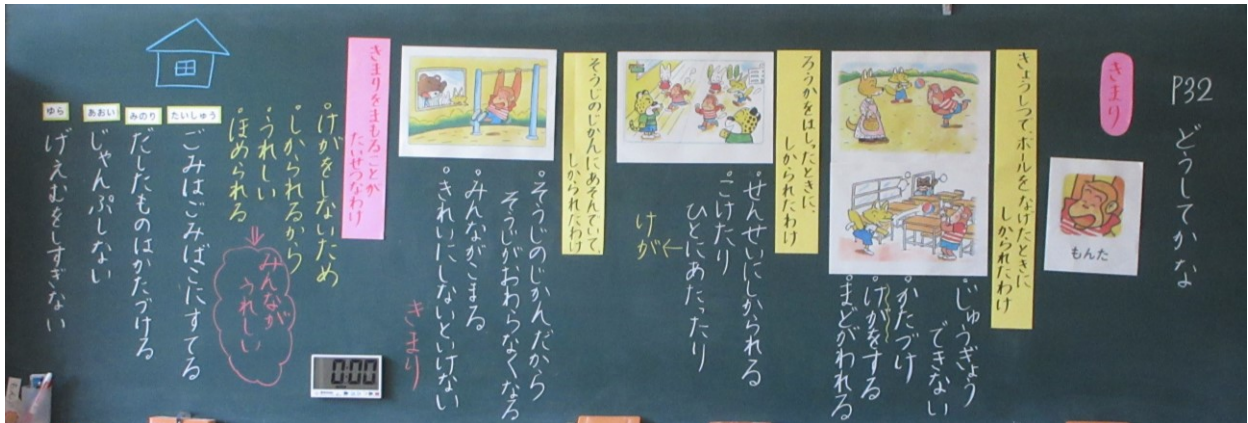 P32 どうしてかな
きまり
もんた
きょうしつで、ボールをなげたときに
しかられたわけ
・じゅうぎょう
できない
・かたづけ
・けがをする
・まどがわれる
ろうかをはしったときに、
しかられたわけ
・せんせいにしかられる
・こけたり
ひとにあたったり
↓
けが
そうじのじかんにあそんでいて、
しかられたわけ
・そうじのじかんだから
そうじがおわらなくなる
・みんながこまる
・きれいにしないといけない
きまり
きまりをまもることが
たいせつなわけ
・けがをしないため
・しかられるから
・うれしい
・ほめられる
⇓
みんなが
うれしい
0:00
たいしゅう
ごみはごみばこにすてる
みのり
だしたものはかたづける
あおい
じゃんぷしない
ゆら
げえむをしすぎない